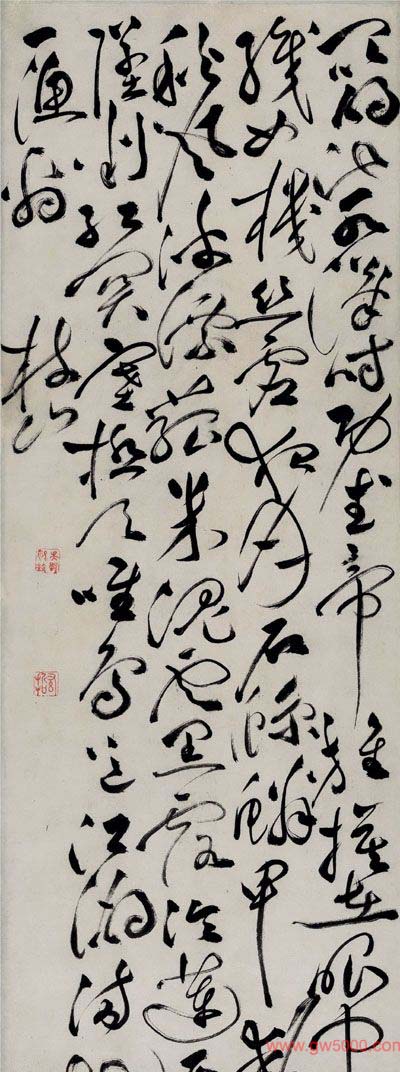 昆明池水漢時功武帝旌旗在眼中
織女機絲虛夜月石鯨鱗甲動
秋風波漂菰米沉雲黑露冷蓮房
墜粉紅關塞極天唯鳥道江湖滿地
一漁翁
枝山
www.gw5000.com